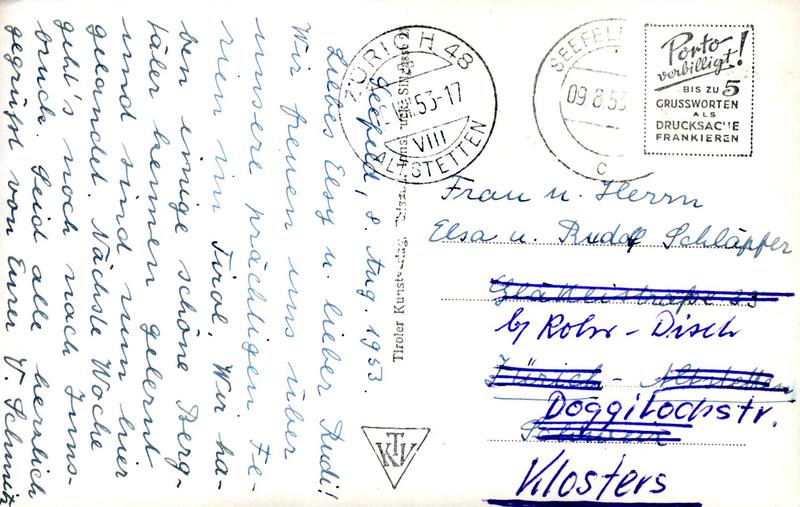 Seefeld, 8. Aug. 1953.
Liebes Elsy u. lieber Rudi!
Wir freuen uns über
unsere prächtigen Fe-
rien im Tirol. Wir ha-
ben einige schöne Berg-
täler kennen gelernt
und sind nun hier
gelandet. Nächste Woche
geht's noch nach Inns-
bruck. Seid alle herzlich
gegrüsst von Eurer V. Schmitz
Tiroler Kunstverlag
KTV
ZÜRICH 48
53-17
VIII
ALTSTETTEN
SEEFELD
09.8.53
c
Porto
verbilligt!
BIS ZU 5
GRUSSWORTEN
ALS
DRUCKSACHE
FRANKIEREN
Frau u. Herrn
Elsa u. Rudolf Schläpfer
b/ Rohr-Disch
Zürich - Altstetten
Doggilochstr.
Klosters